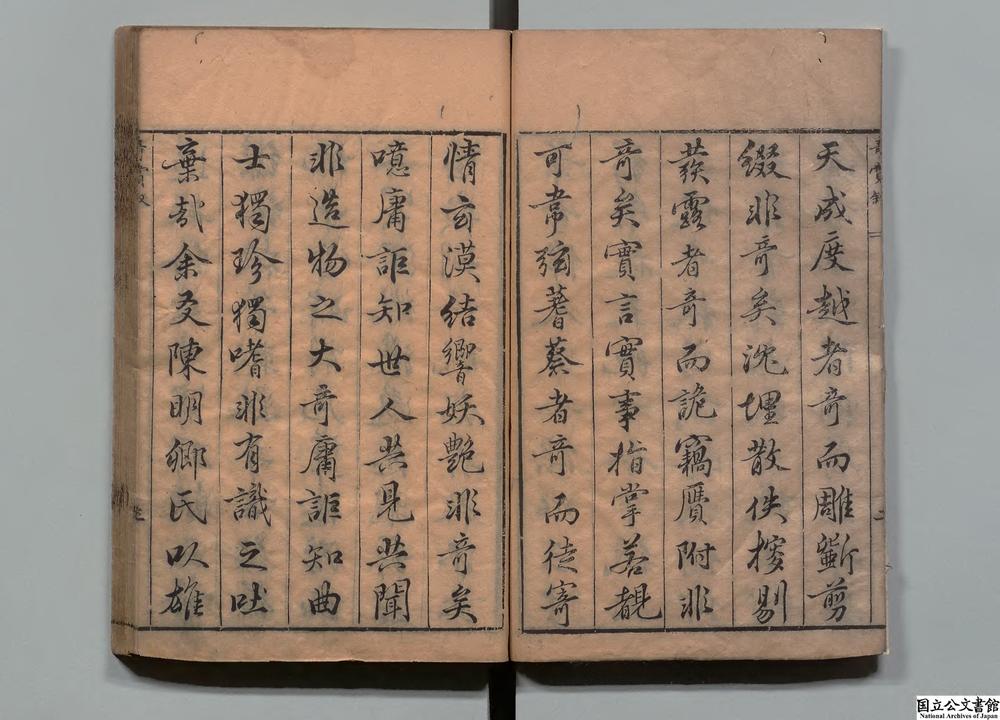 天成度越者奇而雕斵剪
綴非奇矣沈埋散佚搜剔
蕟露者奇而詭竊贋附非
奇矣實言實事指掌若覩
可韋弦蓍蔡者奇而徒寄
情玄漠結響妖艷非奇矣
噫庸詎知世人共見共聞
非造物之大奇庸詎知曲
士獨珍獨嗜非有識之吐
棄哉余友陳明卿氏以雄
国立公文書館
National Archives of Japan